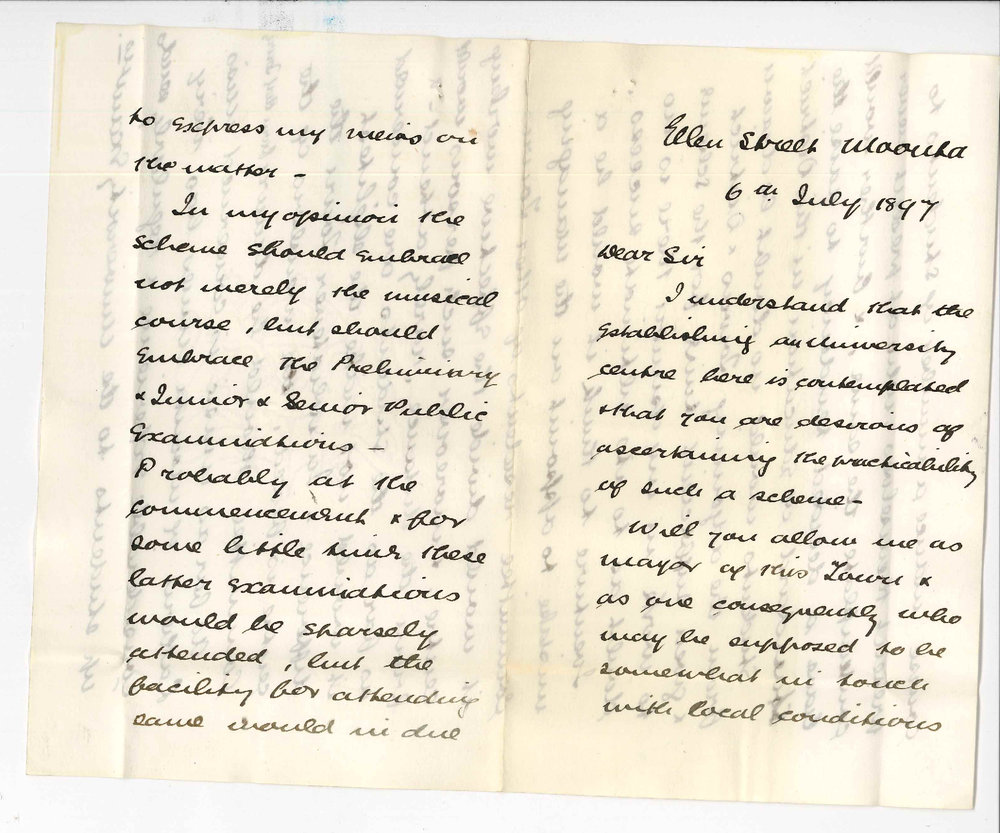 Ellen Street Moonta
6th July 1897
Dear Sir
I understand that the
establishing an University
centre here is contemplated
& that you are desirous of
ascertaining the practicability
of such a scheme -
Will you allow me as
mayor of this Town &
as one consequently who
may be supposed to be
somewhat in touch
with local conditions
to express my views on
the matter -
In my opinion the
scheme should embrace
not merely the musical
course, but should
embrace the Preliminary
& Junior & Senior Public
Examinations -
Probably at the
commencement & for
some little time these
latter examinations
would be sparsely
attended, but the
facility for attending
same would in due